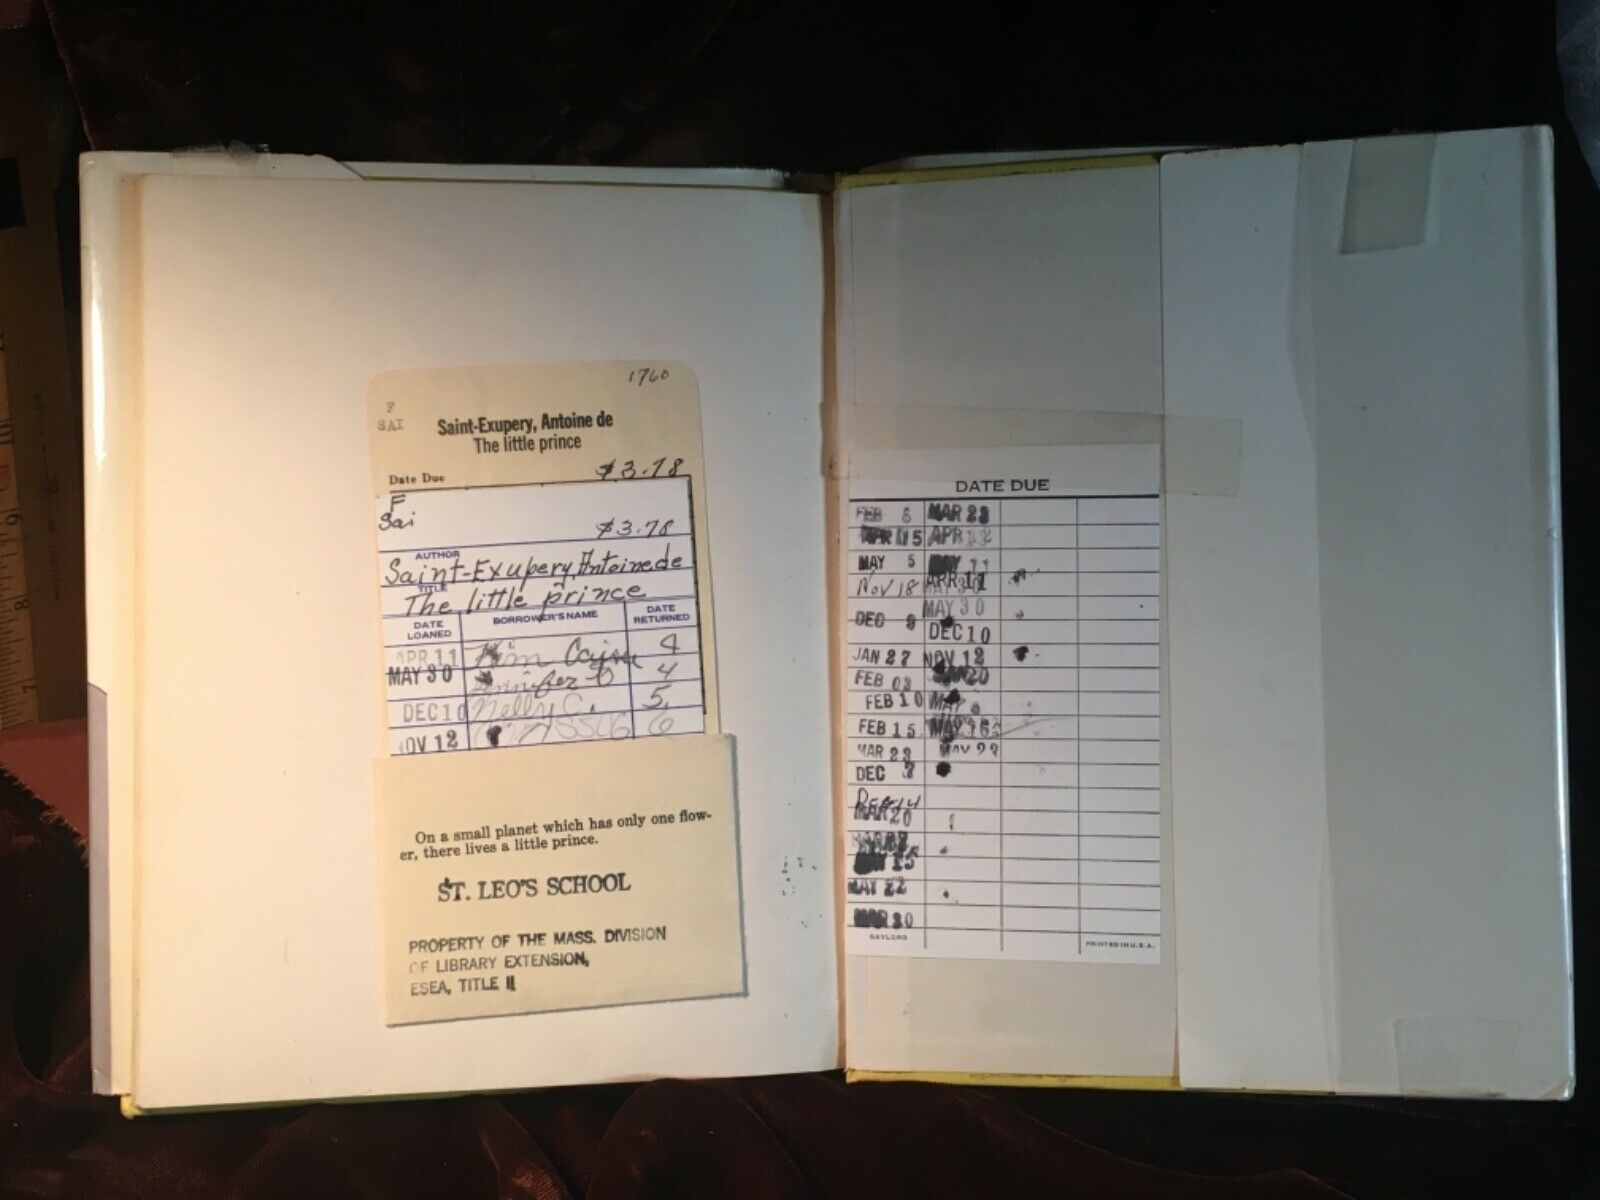 1760
F
SAI
Saint-Exupery, Antoine de
The little prince
Date Due $3.78
F
Sai
$3.78
AUTHOR
Saint-Exupery, Antoine de
TITLE
The little prince
DATE LOANED BORROWER'S NAME DATE RETURNED
APR 11 Kim 4
MAY 30 Jennifer 4
DEC 10 Nelly C. 5
OV 12 6
On a small planet which has only one flow-
er, there lives a little prince.
ST. LEO'S SCHOOL
PROPERTY OF THE MASS. DIVISION
OF LIBRARY EXTENSION,
ESEA, TITLE II
DATE DUE
FEB MAR 23
APR 15 APR
MAY 5 MAY 11
Nov 18 APR 11
MAY 30
MAY 30
DEC
DEC 10
JAN 27 NOV 12
FEB 03 JAN 20
FEB 10 MAY
FEB 15 MAY 16
MAR 23 MAY 29
DEC 7
Dec 14
MAR 20
MAY 15
MAY 22
MAR 30
GAYLORD PRINTED IN U.S.A.
10
9
8
7